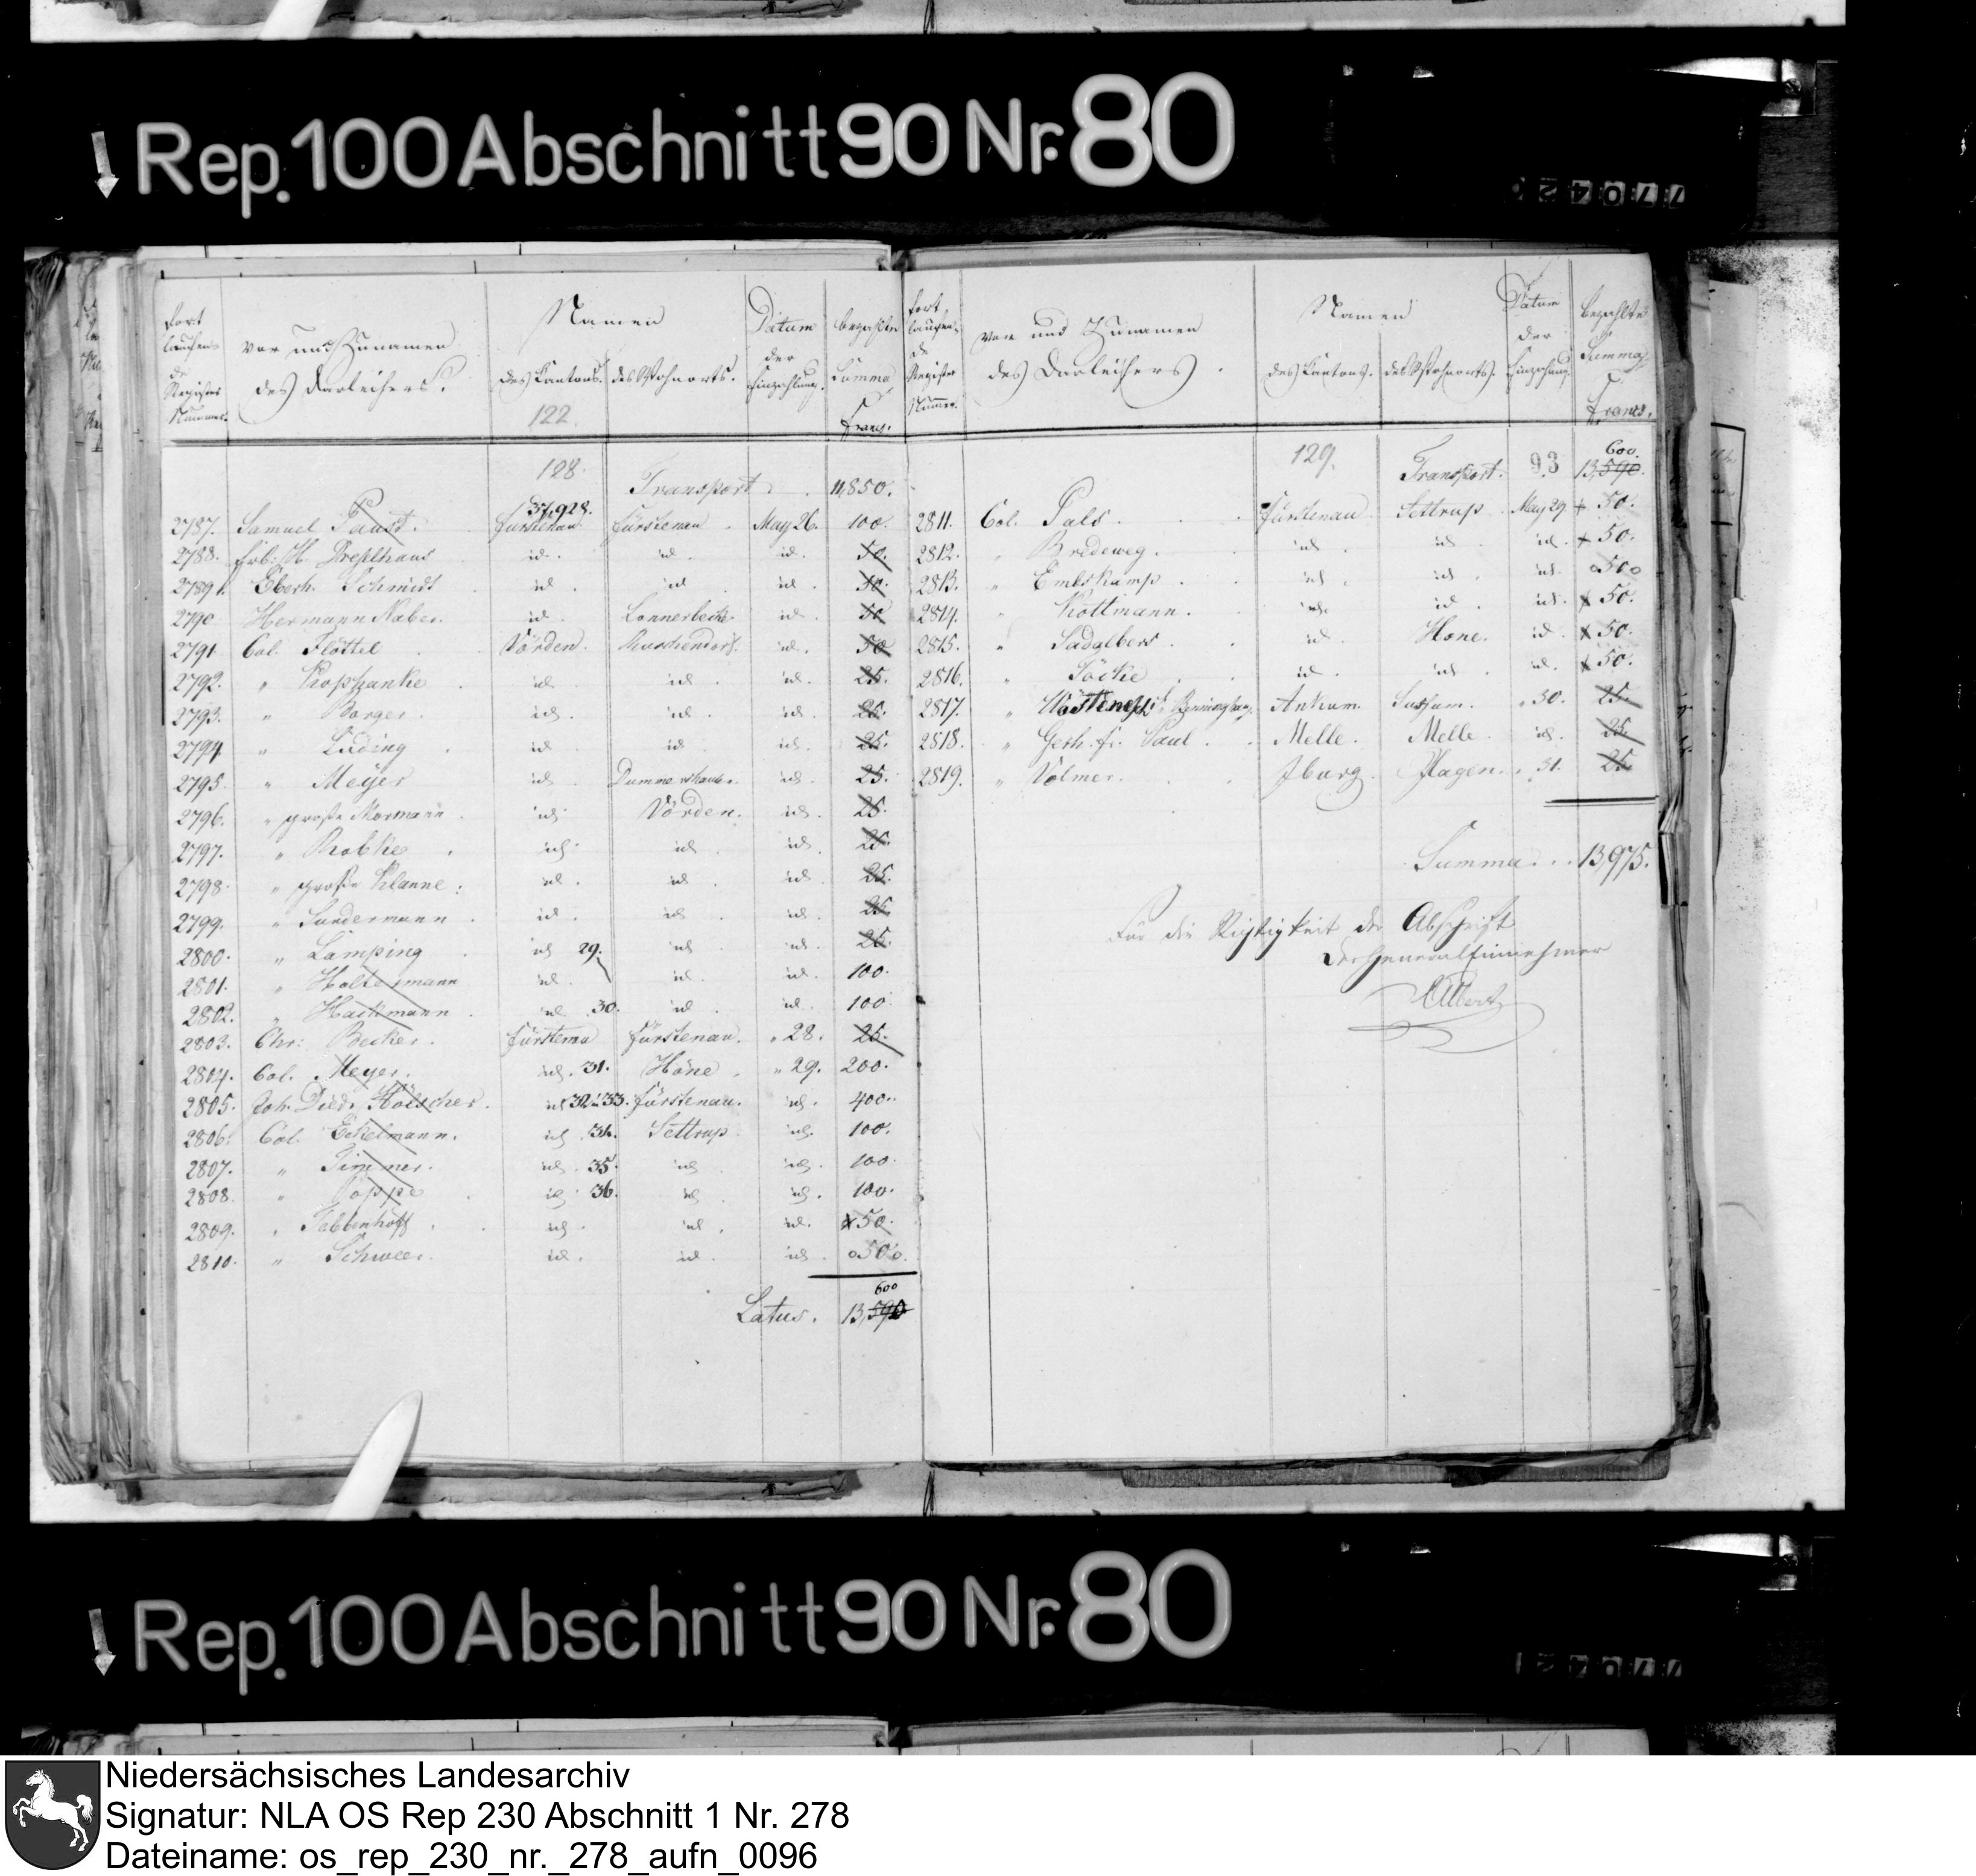 Rep. 100 Abschnitt 90 Nr. 80
Fort laufende Register Nummer.
Vor und Zunamen des Darleihers.
Namen
des Kantons. des Wohnorts.
Datum der Einzahlung.
bezahlte Summa Francs.
122
128.
Transport . 11,850.
37,928.
2787. Samuel Paust. Fürstenau Fürstenau . May 26. 100.
2788. id. id. id. 50.
2789. Eberh. Schmidt id. id. id.
2790 Hermann Naber. id. Lonnerbecke id. 50
2791 Col. Flöttel Vörden. id. 50
2792. " id. id. id. 25.
2793. " Borger id. id. id. 25.
2794 " Lüding id. id. id. 25.
2795. " Meyer id. id. 25.
2796. " große Mormann id. Vörden. id. 25.
2797. " Robke id. id. id. 25.
2798. " große Klanne: id. id. id. 25.
2799. " Sundermann id. id. id. 25
2800. " Lamping id 29. id. id. 25.
2801. " Holtermann id. id. id. 100.
2802. " Hackmann id. 30. id. id. 100
2803. Chr: Becker. Fürstenau Fürstenau. " 28. 25.
2804. Col. Meyer. id. 31. Höne " 29. 200.
2805. Joh. Died. Hölscher id 32 u 33. Fürstenau. id. 400.
2806. Col. Eckelmann. id 34. Settrup id. 100.
2807. " Timmer. id. 35. id. id. 100
2808. " Poppe id. 36. id. id. 100.
2809. " Tebbenhoff id. id. id. x 50.
2810. " Schweer. id. id. id. o 50 o.
600
Latus. 13,590
Fort laufende Register Nummer.
Vor und Zunamen des Darleihers.
Namen
des Kantons. des Wohnorts.
Datum der Einzahlung
Bezahlte Summa Francs.
129.
600.
Transport. 93 13,590.
2811. Col. Pals Fürstenau Settrup May 29 + 50.
2812. " Bredeweg. id. id. id. + 50.
2813. " Embskamp id. id. id. o 50 o
2814. " Kottmann. id. id. id. x 50.
2815. " Sadalbers id. Hone. id. x 50.
2816. " Söcke id. id. id. x 50.
2817. " Ankum. " 30. 25.
2818. " Gerh. fr. Paul Melle. Melle. id. 25.
2819. " Volmer. Iburg. Hagen. " 31. 25.
Summa . . 13,975.
Für die Richtigkeit der Abschrift
Der Generaleinnehmer
Rep. 100 Abschnitt 90 Nr. 80
Niedersächsisches Landesarchiv
Signatur: NLA OS Rep 230 Abschnitt 1 Nr. 278
Dateiname: os_rep_230_nr._278_aufn_0096